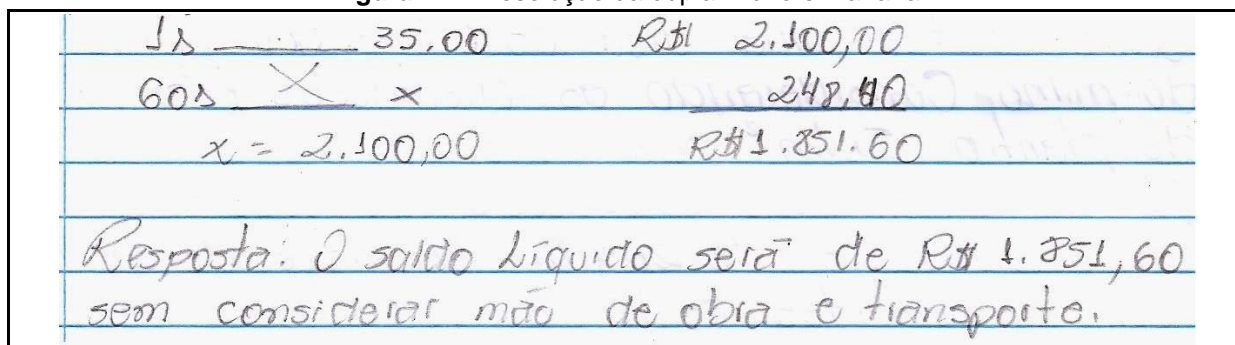 1s ____ 35,00 R$ 2.100,00
60s ____ x 248,40
x = 2.100,00 R$ 1.851.60
Resposta: O saldo Líquido será de R$ 1.851,60
sem considerar mão de obra e transporte.